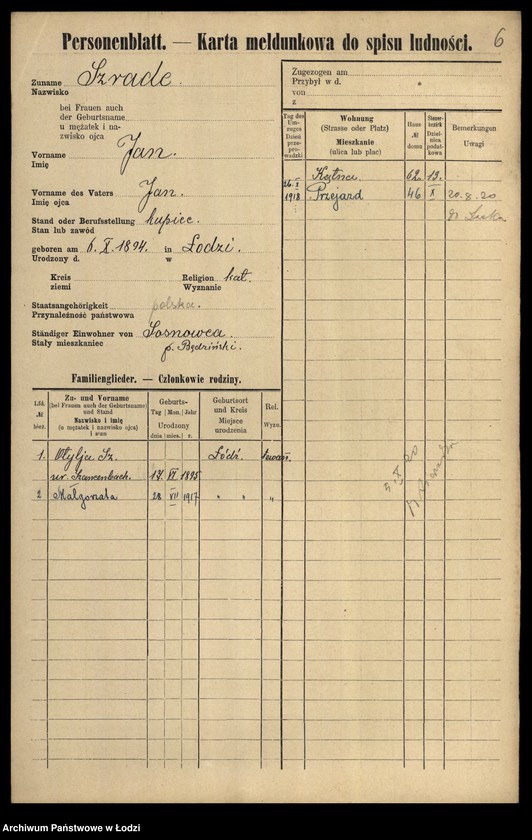 6
Personenblatt. — Karta meldunkowa do spisu ludności.
Zuname Szrade.
Nazwisko
bei Frauen auch
der Geburtsname
u mężatek i na-
zwisko ojca
Vorname Jan.
Imię
Vorname des Vaters Jan.
Imię ojca
Stand oder Berufsstellung kupiec.
Stan lub zawód
geboren am 6. X. 1894. in Łodzi.
Urodzony d. w
Kreis Religion kat.
ziemi Wyznanie
Staatsangehörigkeit polska.
Przynależność państwowa
Ständiger Einwohner von Sosnowca
Stały mieszkaniec p. Będziński.
Zugezogen am
Przybył w d.
von
z
Tag des Um-zuges Dzień prze-prowadzki
Wohnung
(Strasse oder Platz)
Mieszkanie
(ulica lub plac)
Haus № domu
Steuer-bezirk Dziel-nica podat-kowa
Bemerkungen
Uwagi
Kątna 62. 13.
26. X 1918 Przejazd 46 X 20.8.20
5 X 20
Familienglieder. — Członkowie rodziny.
Lfd. № bież.
Zu- und Vorname
(bei Frauen auch der Geburtsname)
und Stand
Nazwisko i imię
(u mężatek i nazwisko ojca)
i stan
Geburts-
Tag Mon. Jahr
Urodzony
dnia mies. r.
Geburtsort
und Kreis
Miejsce
urodzenia
Rel.
Wyzn.
1. Otylja Sz. Łódź. ewan.
17 VI 1895
2 Małgorzata 28 VII 1917 " " "
Archiwum Państwowe w Łodzi